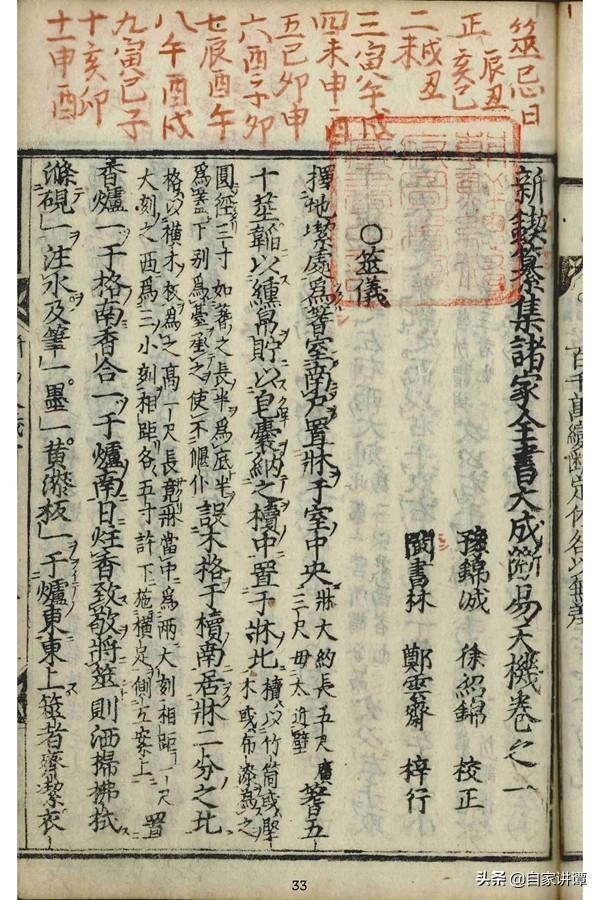 筮忌日
正 辰丑
亥巳
二 戌丑
未
三寅午戌
四未申酉
五巳卯申
六酉子卯
七辰酉午
八午酉戌
九寅巳子
十亥卯
十一申酉
新鋟纂集諸家全書大成斷易天機卷之一
豫錦誠 徐紹錦 校正
閩書林 鄭雲齋 梓行
○筮儀
擇地潔處爲蓍室南戶置牀于室中央牀大約長五尺廣三尺毋太近壁蓍五
十莖韜以纁帛貯以皂囊納之櫝中置于牀北櫝以竹筒或堅木或布漆爲之
圓徑三寸如蓍之長半爲底半爲蓋下別爲臺承之使不偃仆設木格于櫝南居牀二分之北
格以橫木板爲之高一尺長竟牀當中爲兩大刻相距一尺大刻之西爲三小刻相距各五寸許下施橫足側立案上置
香爐一于格南香合一于爐南日炷香致敬將筮則洒掃拂拭
滌硯一注水及筆一墨一黃漆板一于爐東東上筮者齊潔衣
33
头条 @自家讲谭